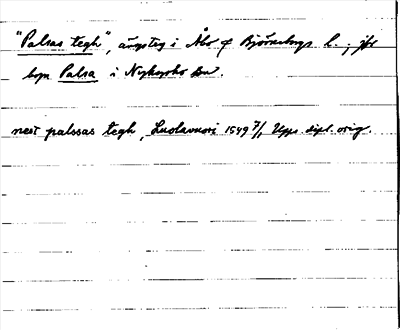 "Palsas tegh", ängsteg i Åbo o Björneborgs l.; jfr
byn Palsa i Nykyrko sn.
nest palssas tegh, Luolavuori 1549 7/1 Upps. dipl. orig.